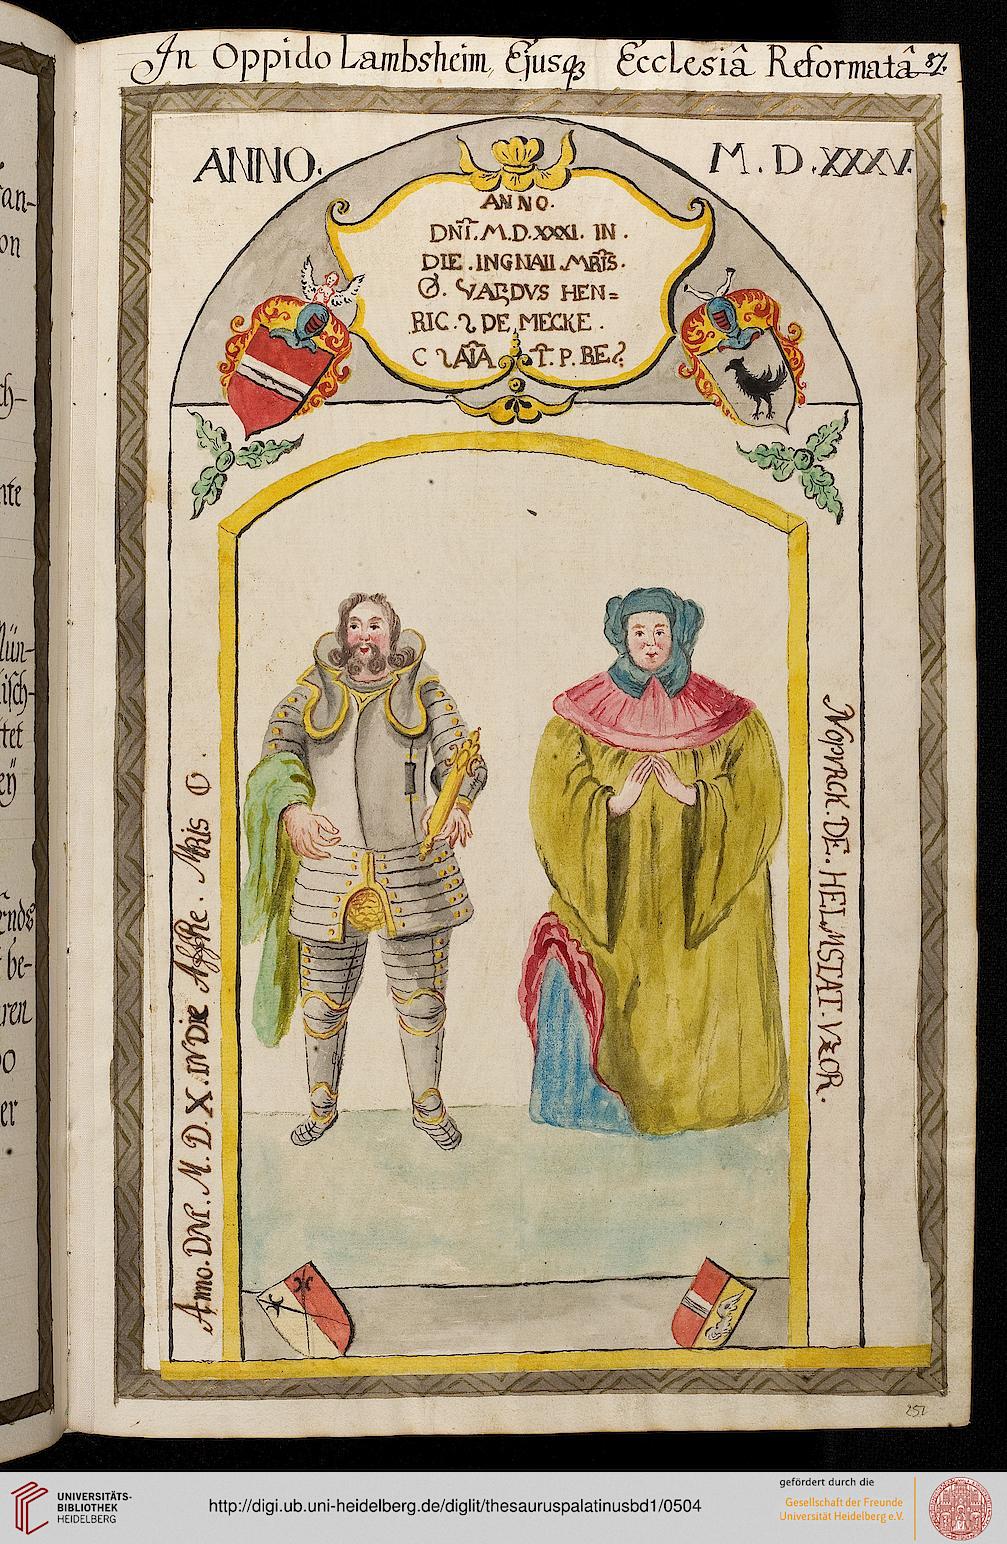 In Oppido Lambsheim, Ejusq3 Ecclesiâ Reformatâ 87.
ANNO. M.D.XXXV.
ANNO.
DNI.M.D.XXXI. IN.
DIE. INGNAII. MRIS.
O. VARDVS HEN=
RIC. DE MECKE.
C AIA T. P. BE
Anno. DNI. M. D. X. IN Die Affre. Mris O.
NOPYRCK. DE. HELMSTAT. VXOR.
251
an-
on
ch-
nte
Mün-
lisch-
tet
ey
ends
be-
ren
er
UNIVERSITÄTS-
BIBLIOTHEK
HEIDELBERG
http://digi.ub.uni-heidelberg.de/diglit/thesauruspalatinusbd1/0504
gefördert durch die
Gesellschaft der Freunde
Universität Heidelberg e.V.